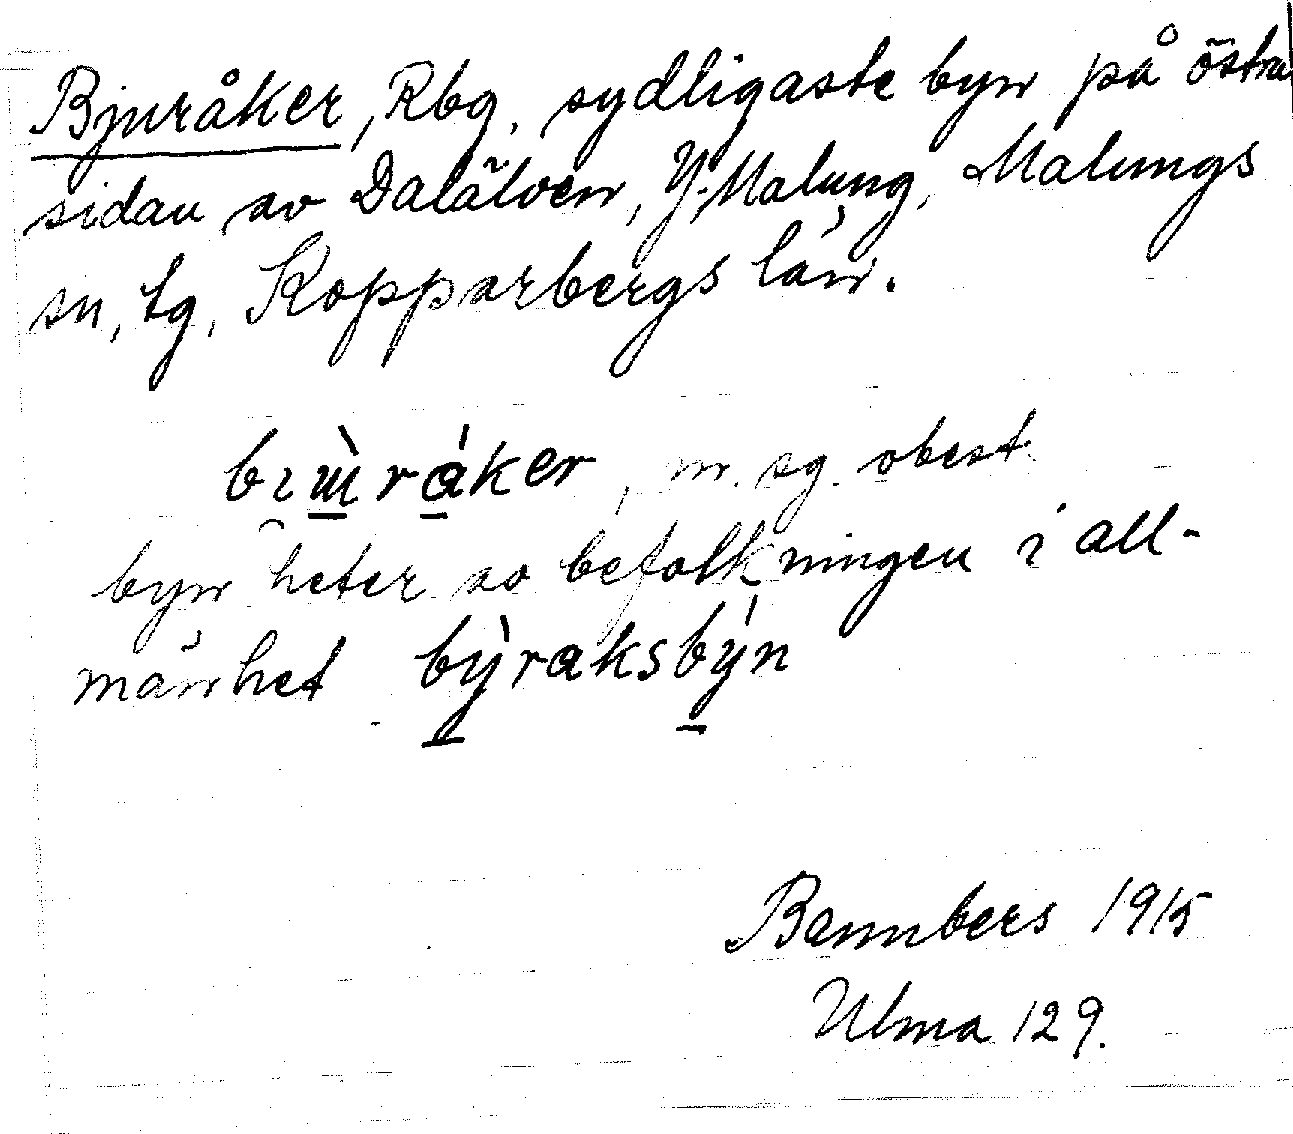 Bjuråker, Rbg, sydligaste byn på östra
sidan av Dalälven, Y. Malung, Malungs
sn, tg, Kopparbergs län.
bɪɯ̀ráker, m. sg. obest
byn heter av befolkningen i all-
mänhet bỳraksbýn
Bannbers 1915
Ulma 129.